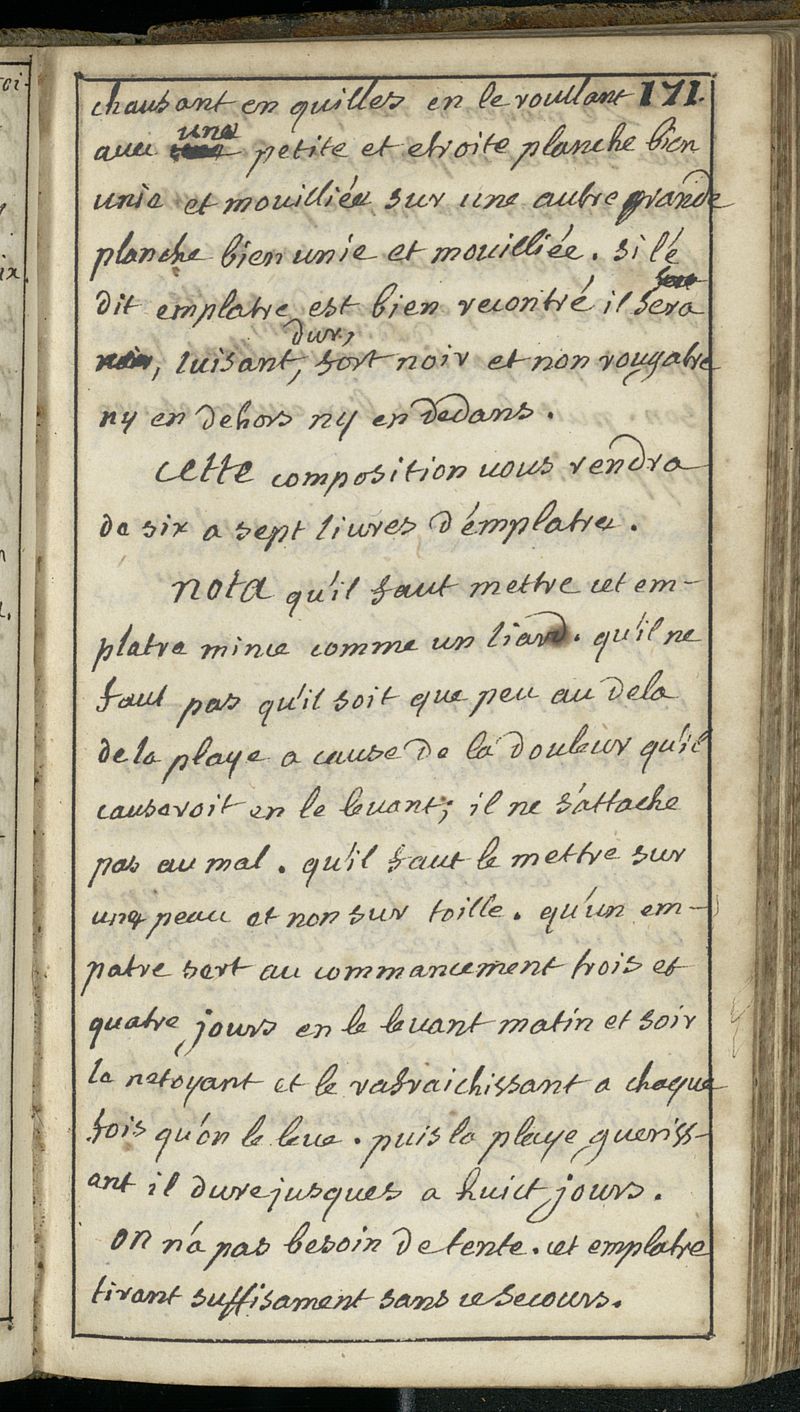 171.
chausant en quilles en le roullant
avec une petite et etroite planche bien
unie et mouilliée sur une autre grande
planche bien unie et mouilliée. si lé
dit emplatre est bien recontré il sera
dur,
noir, luisant, fort noir et non rougatre
ny en dehors ny en dedans.
cette composition vous rendra
de six a sept livres d'émplatre.
nota qu'il faut mettre cet em-
platre mince comme un liard. qu'il ne
faut pas qu'il soit que peu au dela
de la playe a cause de la douleur qu'il
causeroit en le levant; il ne s'attache
pas au mal. qu'il faut le mettre sur
une peau et non sur toille. qu'un em-
patre sert au commancement trois et
quatre jours en le levant matin et soir
le netoyant et le rafraichissant a chaque
fois qu'on le leve. puis la playe gueriss-
ant il dure jusques a huict jours.
on n'a pas besoin de tente. cet emplatre
tirant suffisament sans ce secours.